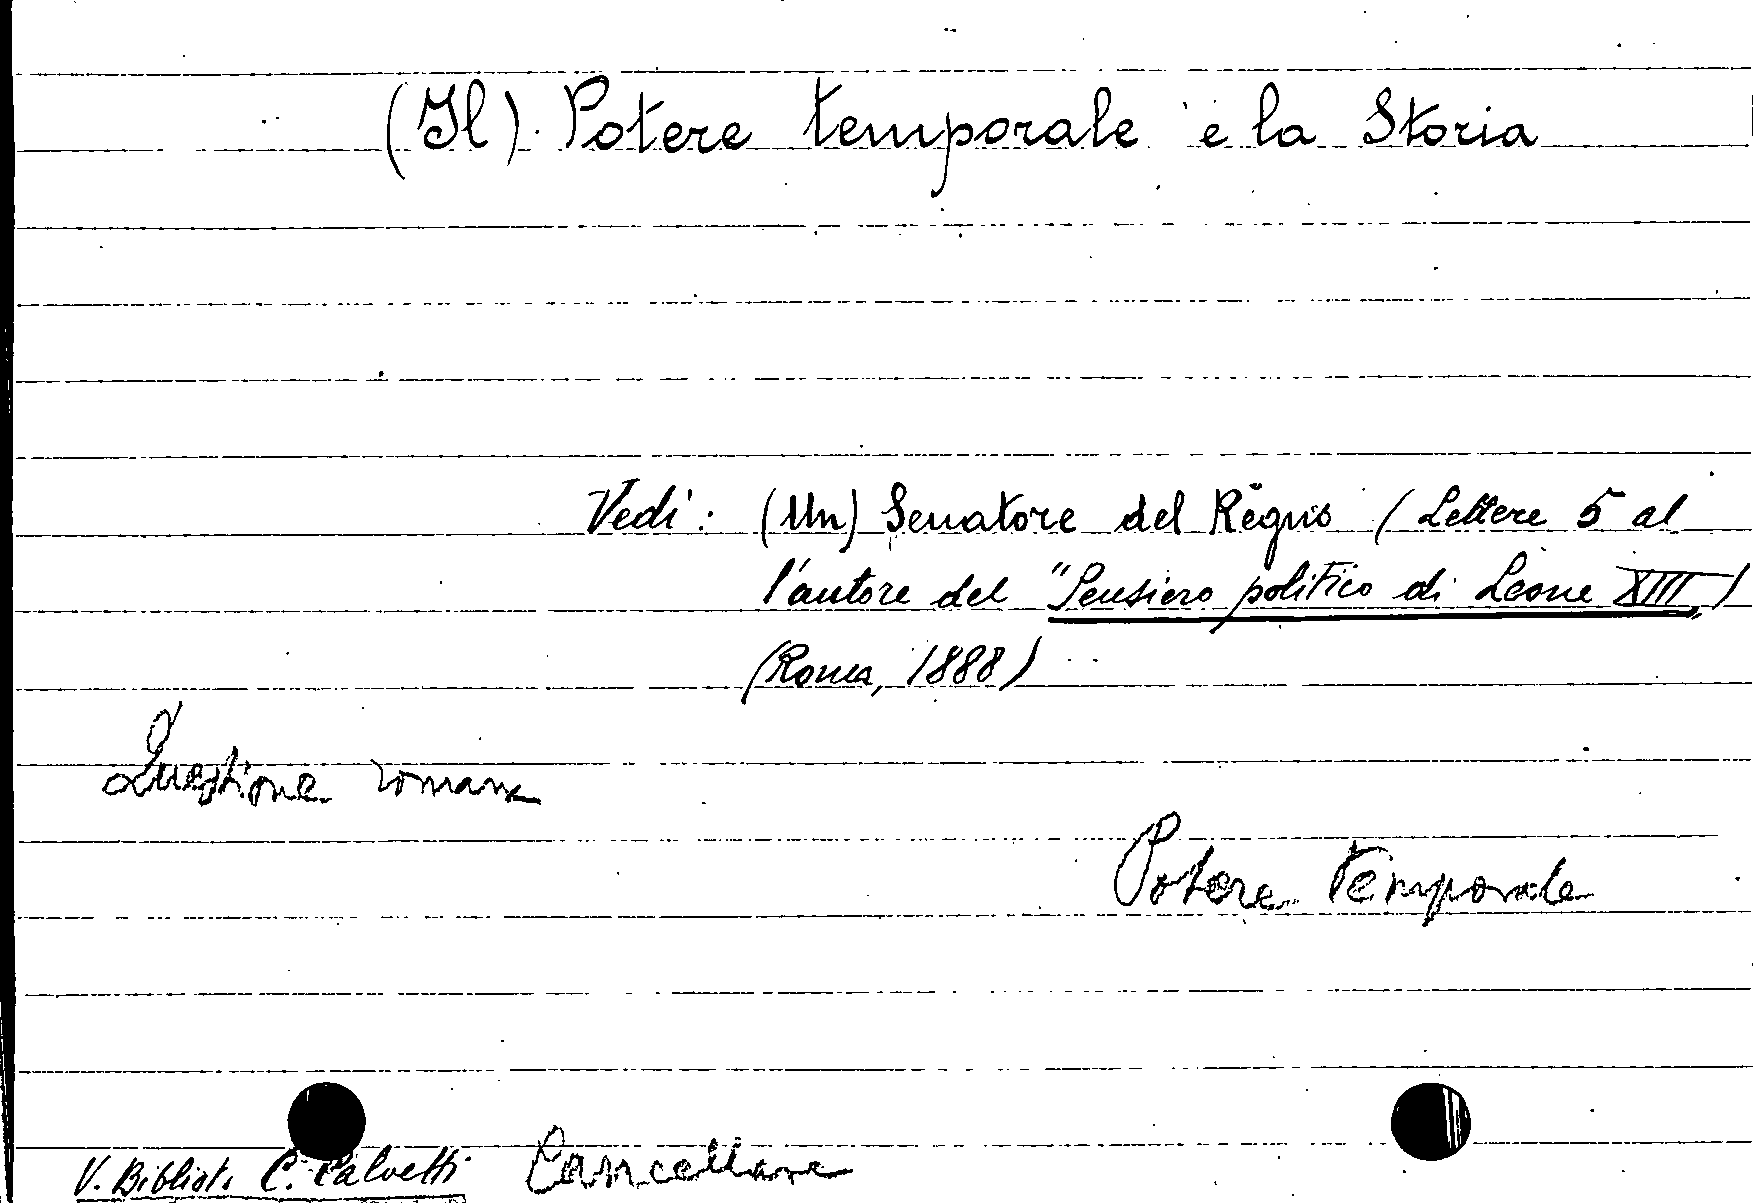 (Il) Potere temporale e la Storia
Vedi: (Un) Senatore del Regno (Lettere 5 al
l'autore del "Pensiero politico di Leone XIII")
(Roma, 1888)
Questione romana
Potere temporale
V. Bibliot. C. Calvetti Cancellare